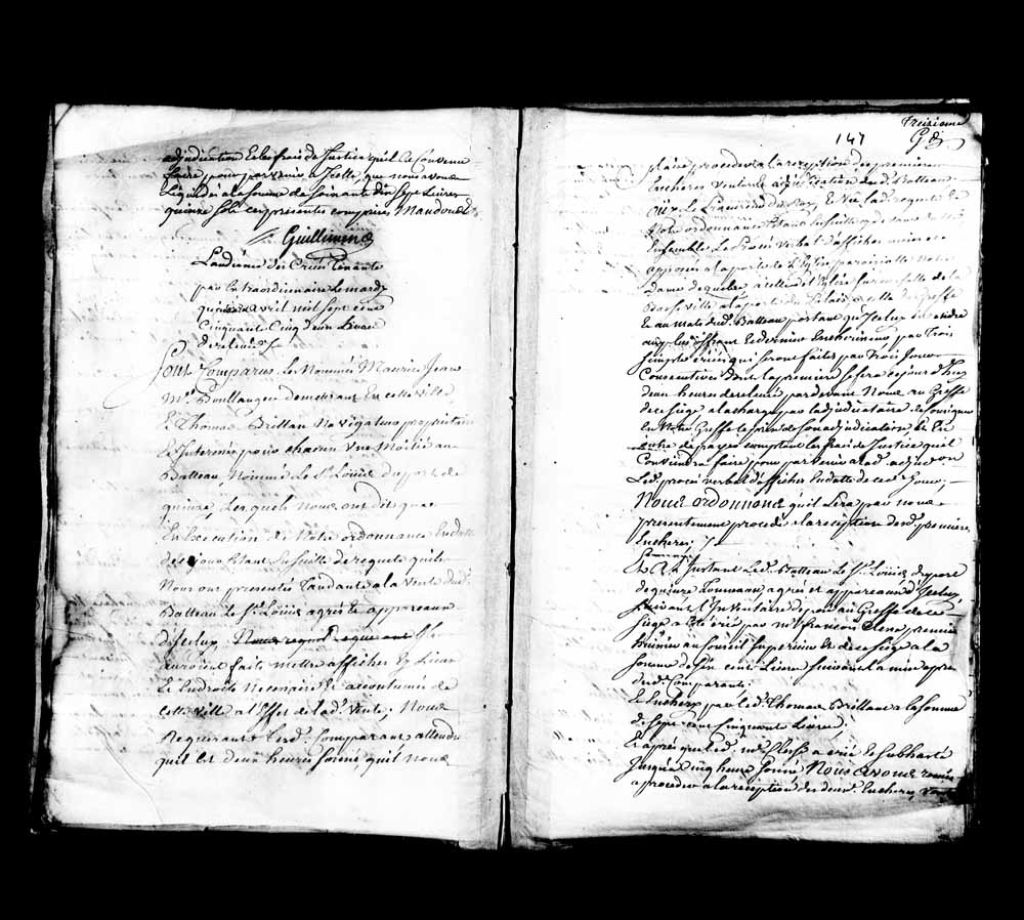 adjudication et les frais de Justice qu'il a Convenu
faire pour parvenir a Icelle, que nous avons
Liquidés a la somme de soixante dix sept Livres
quinze sols en presente compris Mandons &
Guillimin
L'audiance des Criées Tenante
par Extraordinaire Le mardy
quinze avril mil sept cens
Cinquante Cinq deux heures
de relevée
Sont Comparus Les Nommés Maurice Jean
Me. Boullanger demeurans En cette ville
Et Thomas Brillan Navigateurs proprietaires
et Interessés pour chacun Une Moitié au
Batteau Nommé Le St. Louis du port de
quinze, Lesquels Nous ont dits que
En Execution de Notre ordonnance En datte
de ce jour Etant En suitte de requete qu'ils
Nous ont presentés Tandante a la Vente dud.
Batteau Le St. Louis agrés et apparaux
d'iceluy,
auroient faits mettre affiches Es Lieux
et Endroits Necessaires & accoutumés de
cette ville a l'effet de lad. Vente; Nous
Requerans Lesd. Comparans attendu
qu'il Est deux heures sonné, qu'il nous
Treizieme
147
G
plaise proceder a la reception des premieres
Encheres Vente et adjudication dud. Batteau
Notre ordonnance Etant En suitte
Ensemble Le Procés Verbal d'affiches mises et
apposées a la porte de L'Eglise paroissialle Notre
dame de quebec, a celle de
Basse ville a la porte du Palais, a celle du Greffe
et au mats dud. Batteau portant qu'Iceluy
au plus offrant et dernier Encherisseur par Trois
simples Criées qui seront faites par Trois Jours
Consecutives dont la premiere se fera ce jourd'huy
deux heures de relevée pardevant Nous au Greffe
de ce siege a la charge par L'adjudicataire de consigner
En Notre Greffe le prix de son adjudication, et En
outre de payer comptant les frais de Justice qu'il
Conviendra faire pour parvenir a lad. adjudon.
Led. procés verbal d'affiches En datte de ced. Jour;
Nous ordonnons qu'il sera par nous
presentement procedé a la reception desd. premieres
Encheres;
Et A L'Instant Led. Batteau Le St. Louis du port
de quinze Tonneaux agrés et apparaux d'Iceluy
suivant L'Inventaire deposé au Greffe de ce
siege a Eté crié par me. francois Clesse premier
huissier au Conseil superieur et de ce siege a la
somme de six cent Livres suivant la mise a prix
desd. Comparants.
Et Encheri par led. Thomas Brillant a la somme
de sept cent Cinquante Livres;
Et aprés que Led. me. Clesse a crié Et subhasté
Jusqu'a cinq heures sonné Nous avons remis
a proceder a la reception des deuxe. Encheres,